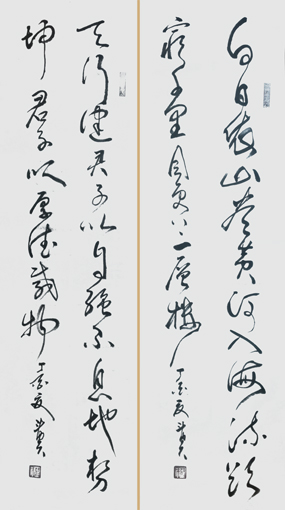 白日依山尽黄河入海流欲
窮千里目更上一層樓
丁亥夏
天行健君子以自強不息地势
坤君子以厚德載物
丁亥夏